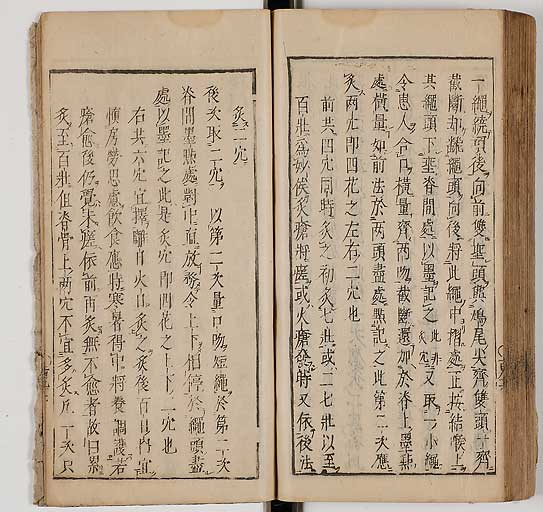 一繩繞項後向前雙垂頭與鳩尾尖齊雙頭一齊
截斷却翻繩頭向後將此繩中摺處正按結喉上
其繩頭下垂脊間處以墨記之此非灸穴又取一小繩
令患人合口橫量齊兩吻截斷還加於脊上墨點
處橫量如前法於兩頭盡處點記之此第二次應
灸兩穴即四花之左右二穴也
前共四穴同時灸之初灸七壯或二七壯以至
百壯為妙候灸瘡將瘥或火瘡發時又依後法
灸二穴
後次取二穴 以第二次量口吻短繩於第二次
脊間墨點處對中直放務令上下相停於繩頭盡
處以墨記之此是灸穴即四花之上下二穴也
右共六穴宜擇離日火日灸之灸後百日內宜
慎房勞思慮飲食應時寒暑得中將養調護若
瘡愈後仍覺未瘥依前再灸無不愈者故曰累
灸至百壯但脊骨上兩穴不宜多灸凡一次只